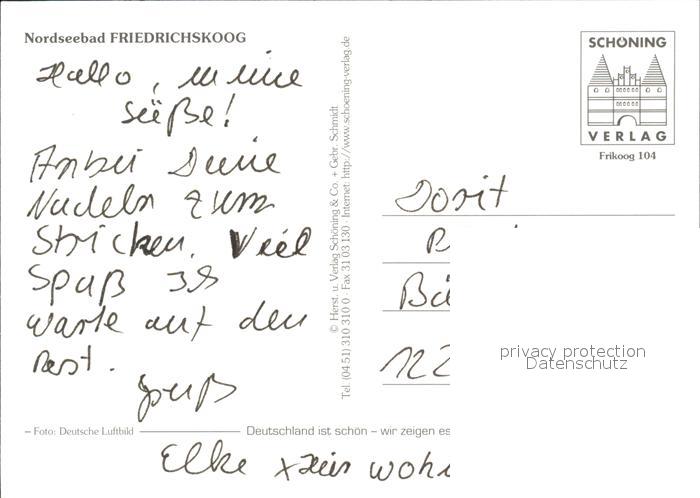 Nordseebad FRIEDRICHSKOOG
Hallo, meine
süße!
Anbei Deine
Nadeln zum
Stricken. Viel
Spaß
warte auf den
Rest.
Gruß
Elke
– Foto: Deutsche Luftbild
Deutschland ist schön – wir zeigen es
© Herst. u. Verlag Schöning & Co. + Gebr. Schmidt
Tel. (04 51) 310 310 0 · Fax 31 03 130 · Internet: http://www.schoening-verlag.de
SCHÖNING
VERLAG
Frikoog 104
Dorit
122
privacy protection
Datenschutz